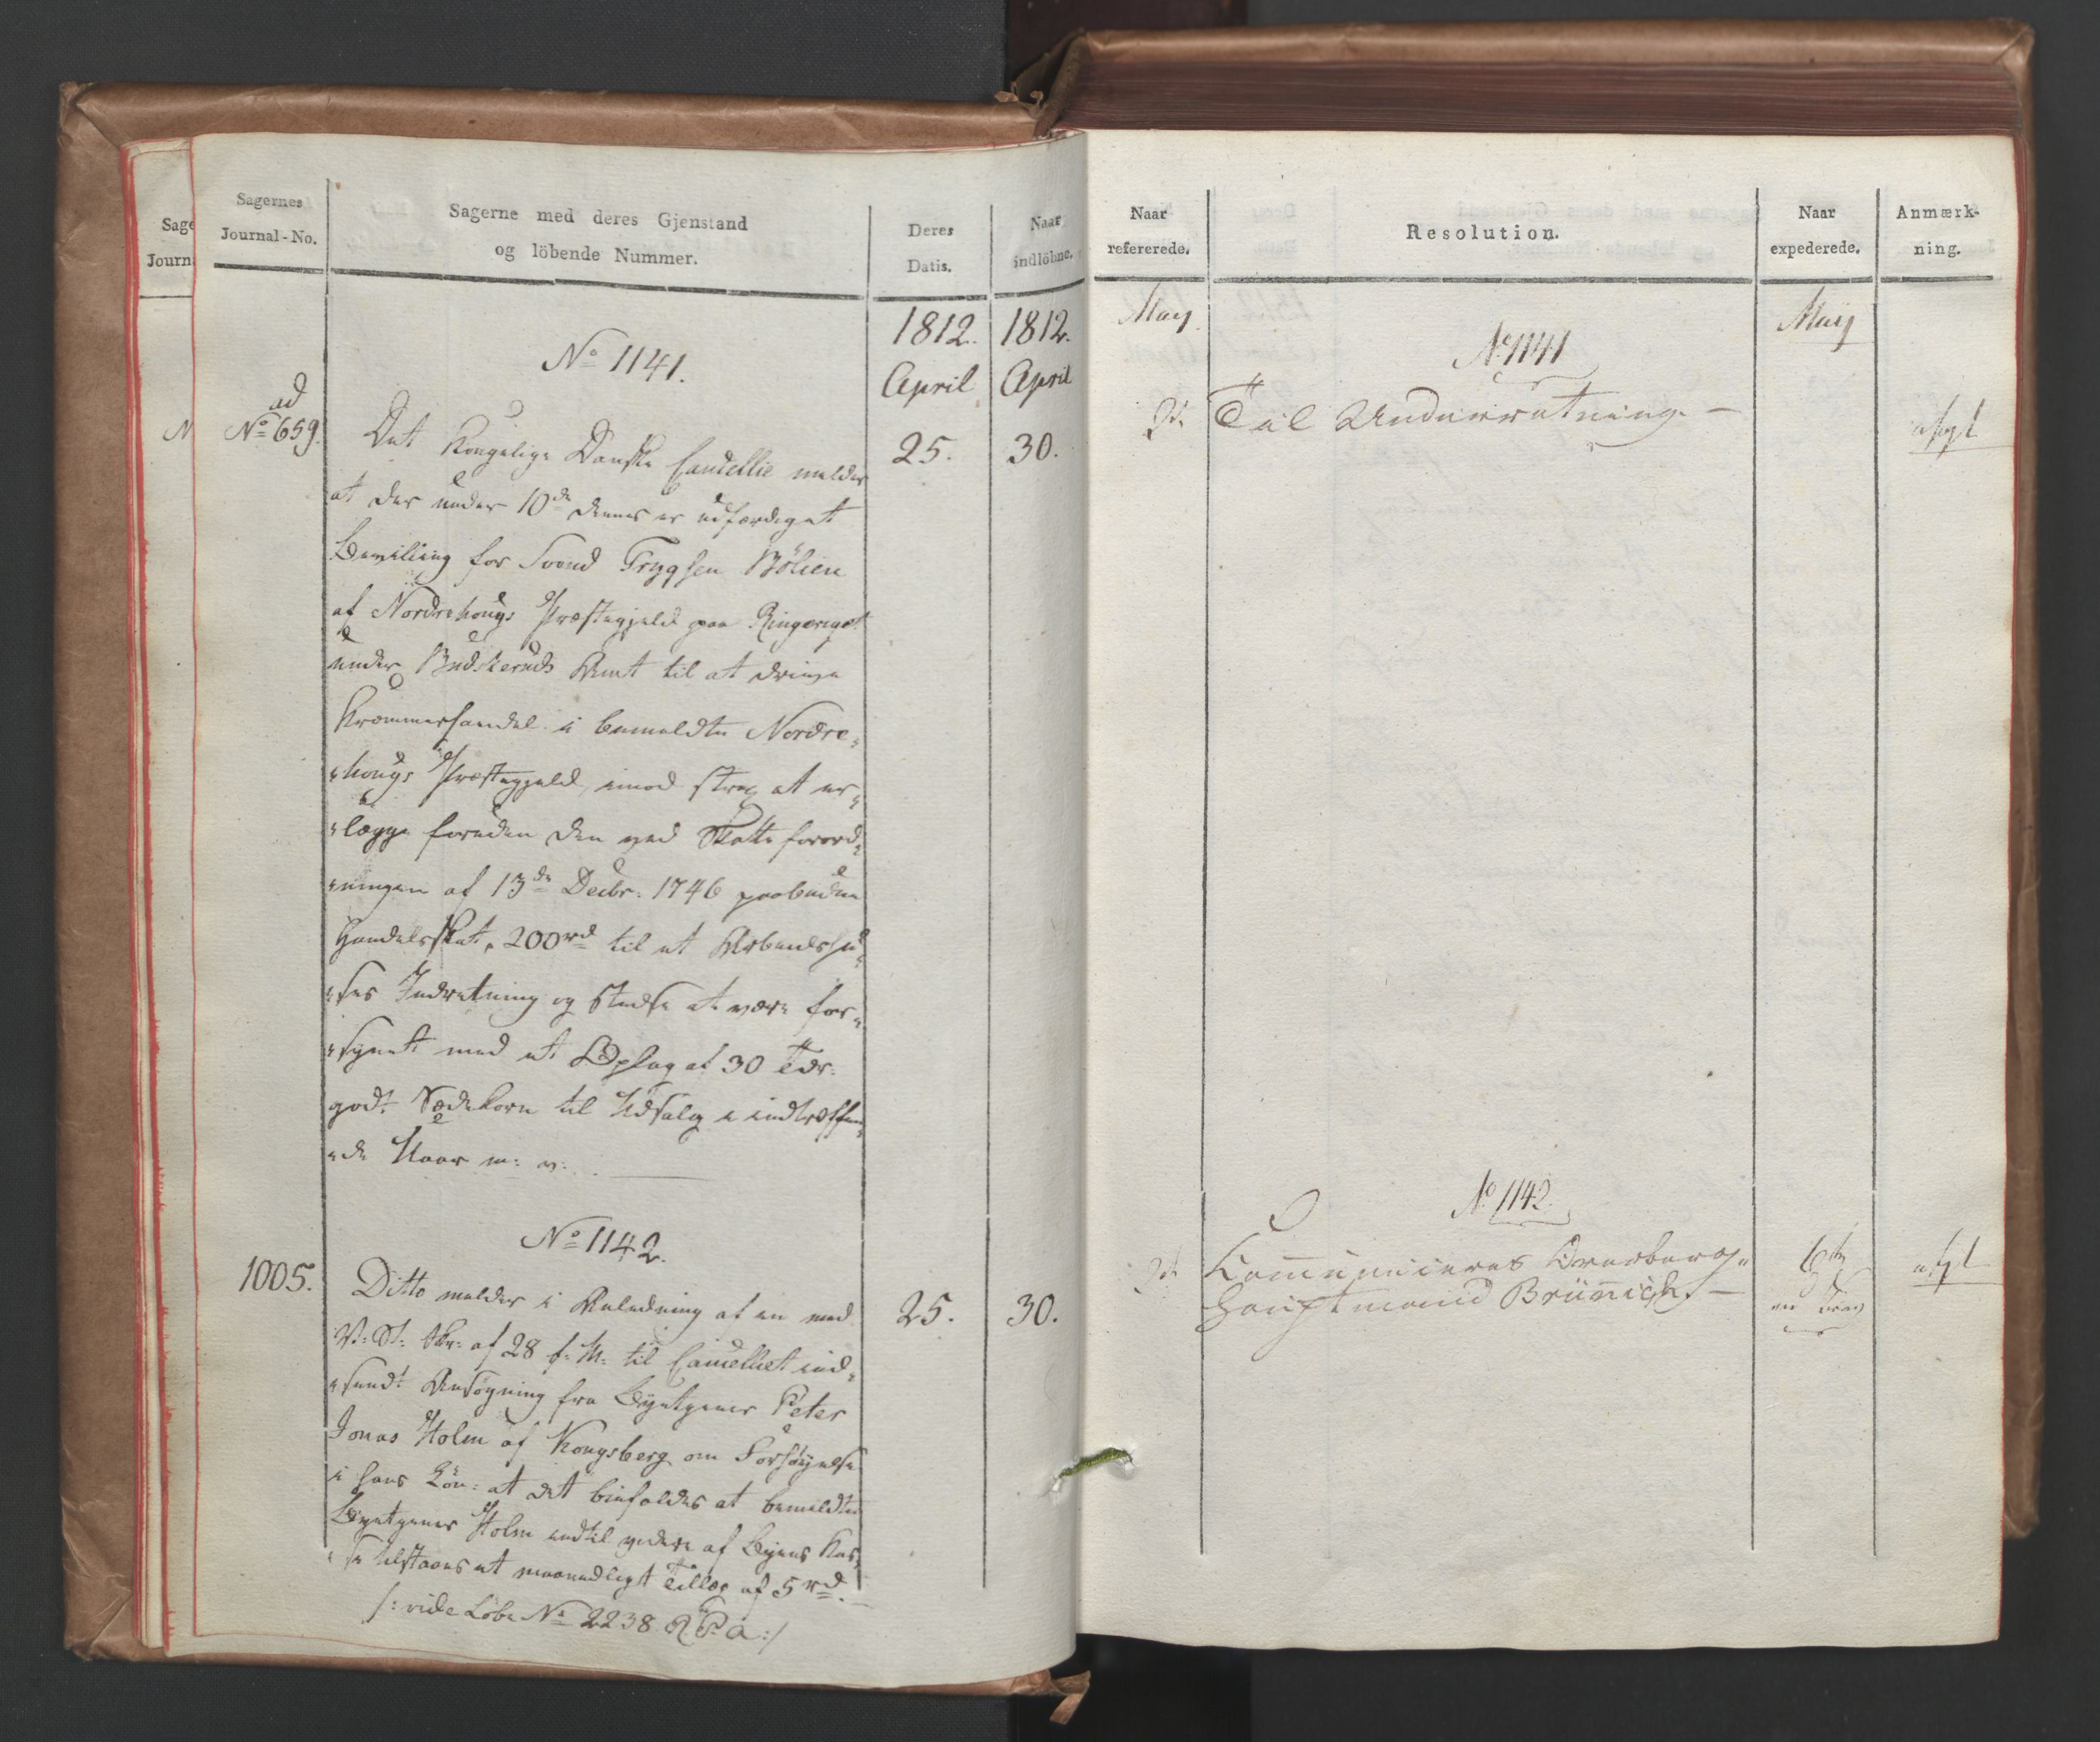 Sage
Journ
N
Sagernes
Journal-No.
Sagerne med deres Gjenstand
og löbende Nummer.
Deres
Datis.
Naar
indlöbne.
1812.
1812.
April
April
No 1141.
ad
No 659.
25.
30.
Det Kongelige Danske Cancellie melder
at der under 10de dennes er udfærdiget
Bevilling for Svend Trygsen Bölien
af Nordrehougs Præstegjeld paa Ringeriget
under Budskeruds Amt til at drive
Kræmmerhandel i bemeldte Nordre-
hougs Præstegjeld, imod strax at er-
lægge foruden den ved Skatteforord-
ningen af 13de Decbr: 1746 paabudne
Handelsskat, 200rd til et Arbeidshu-
ses Indretning og stedse at være for-
synet med et Oplag af 30 Tdr:
godt Sædekorn til Udsalg i indtræffen-
de Uaar m: v:
No 1142.
1005.
25.
30.
Ditto melder i Anledning af en med
V: St: Skr: af 28 f: M: til Cancelliet ind-
sendt Ansøgning fra Byetgener Peter
Jonas Holm af Kongsberg om Forhöyelse
i hans Lön: at det bifaldes at bemeldte
Byetgener Holm indtil videre af Byens Kas-
se tilstaaes et maanedligt Tillæg af 5rd.
/: vide Löbe No 2238 R. P. a:/
Naar
refererede.
Resolution.
Naar
expederede.
Anmærk-
ning.
May
May
No 1141
2d. Til Underretning. —
afgl
No 1142.
2d. Communiceres Overberg-
Hauptmand Brünnich. —
6te
afgl